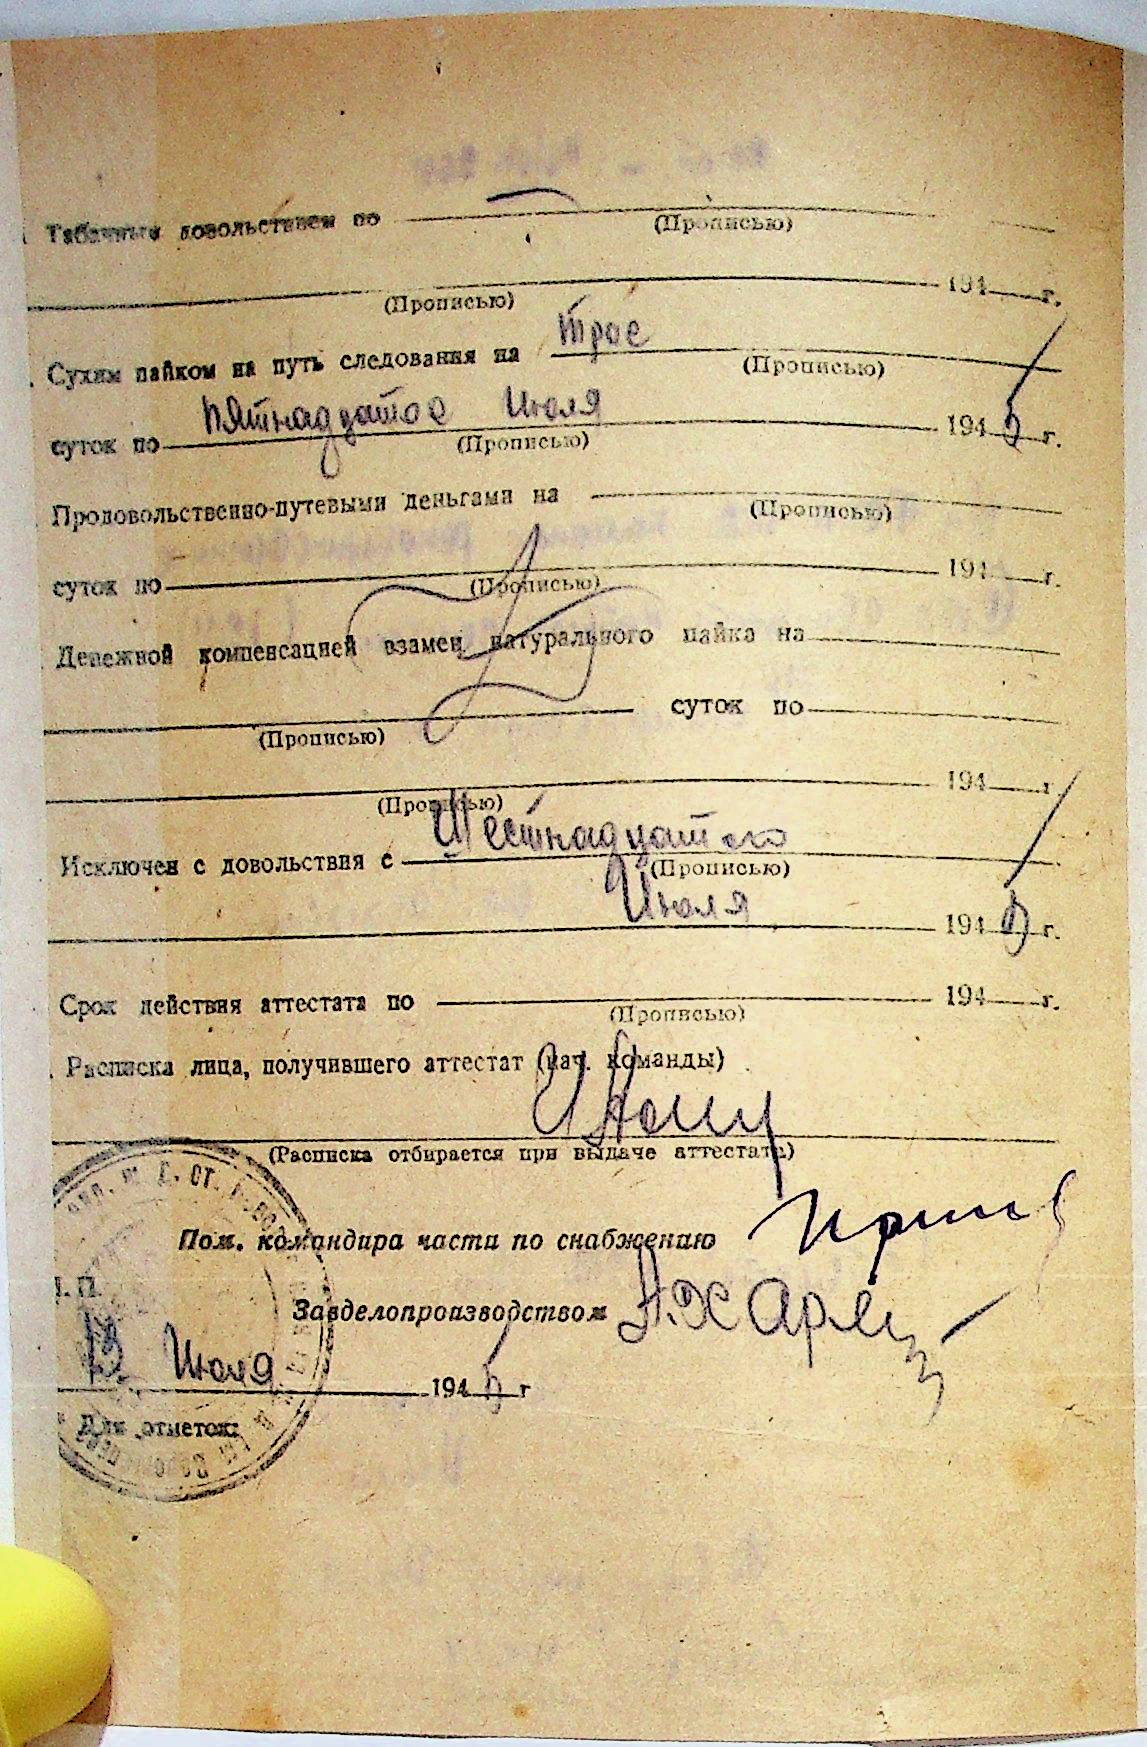 Табачным довольствием по —
(Прописью)
194 г.
(Прописью)
Сухим пайком на путь следования на трое
(Прописью)
суток по пятнадцатое Июля 1945 г.
(Прописью)
Продовольственно-путевыми деньгами на
(Прописью)
суток по 194 г.
(Прописью)
Денежной компенсацией взамен натурального пайка на
суток по
(Прописью)
194 г.
(Прописью)
Исключен с довольствия с Шестнадцатого
(Прописью)
Июля 1945 г.
Срок действия аттестата по 194 г.
(Прописью)
Расписка лица, получившего аттестат (нач. команды)
(Расписка отбирается при выдаче аттестата)
Пом. командира части по снабжению
П.
Завделопроизводством
13 Июля 1945 г
Для отметок: